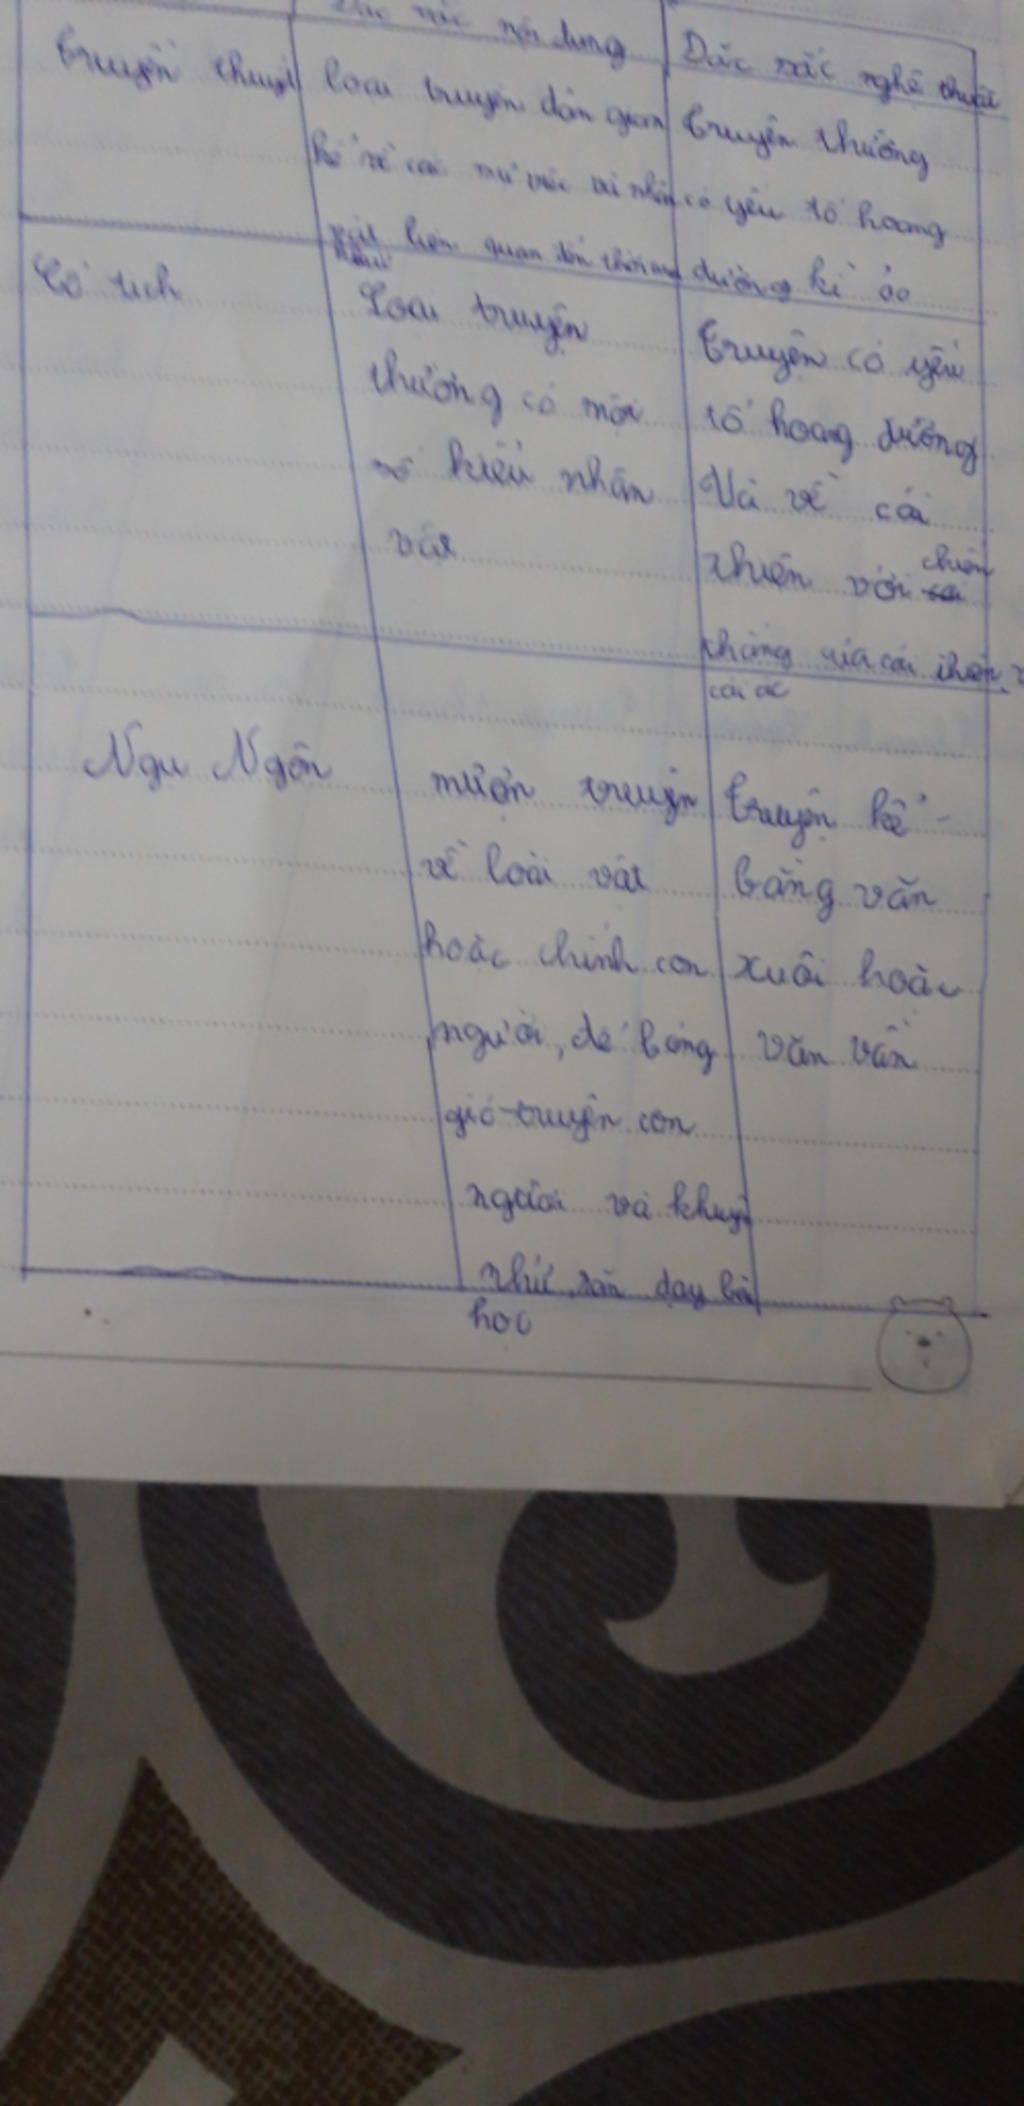 nội dung
Đặc sắc nghệ thuật
truyền thuyết
loại truyện dân gian
kể về các sự việc và nhân
vật liên quan đến
truyện thường
có yếu tố hoang
đường kì ảo
Cổ tích
Loại truyện
thường có một
số kiểu nhân
vật
truyện có yếu
tố hoang đường
Và về cái
thiện với chiến
thắng của cái thiện
cái ác
Ngụ Ngôn
mượn truyện
về loài vật
hoặc chính con
người, để bóng
gió truyện con
người và khuyê
nhủ, răn dạy bài
học
truyện kể
bằng văn
xuôi hoặc
văn vần